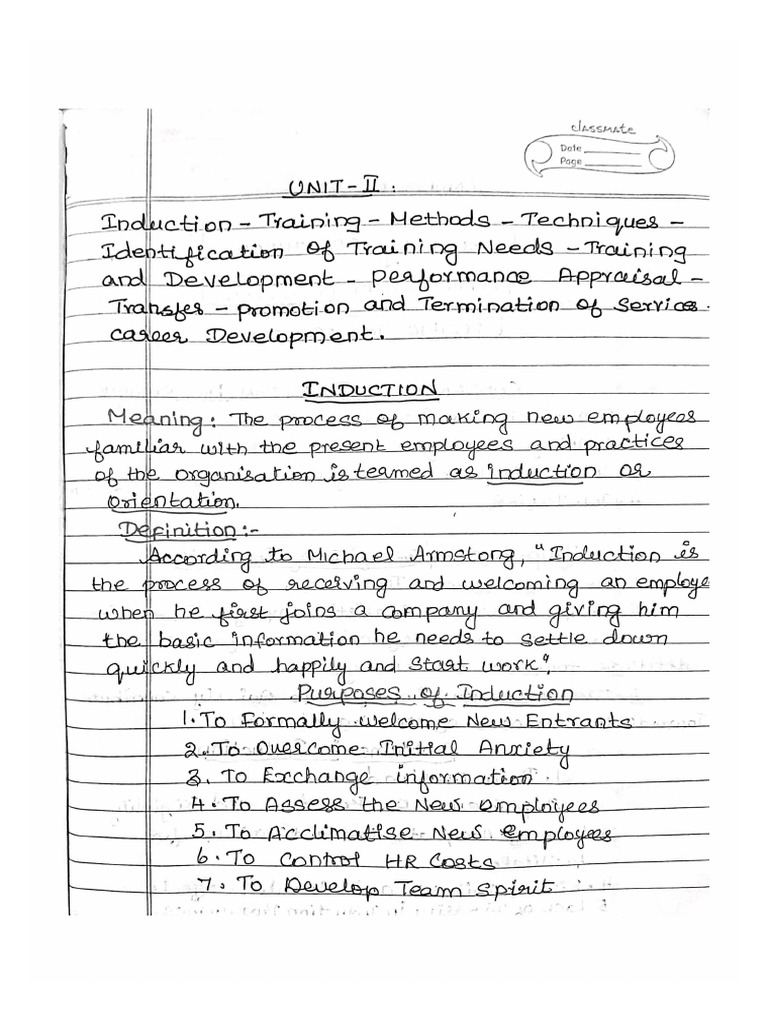 classmate
Date
Page
UNIT-II :
Induction - Training - Methods - Techniques -
Identification of Training Needs - Training
and Development - Performance Appraisal -
Transfer - promotion and Termination of Services.
career Development.
INDUCTION
Meaning: The process of making new employees
familiar with the present employees and practices
of the organisation is termed as induction or
orientation.
Definition:-
According to Michael Armstong, "Induction is
the process of receiving and welcoming an employe
when he first joins a company and giving him
the basic information he needs to settle down
quickly and happily and start work".
Purposes of Induction
1. To Formally welcome New Entrants
2. To Overcome Initial Anxiety
3. To Exchange information.
4. To Assess the New employees
5. To Acclimatise New employees
6. To Control HR Costs
7. To Develop Team Spirit